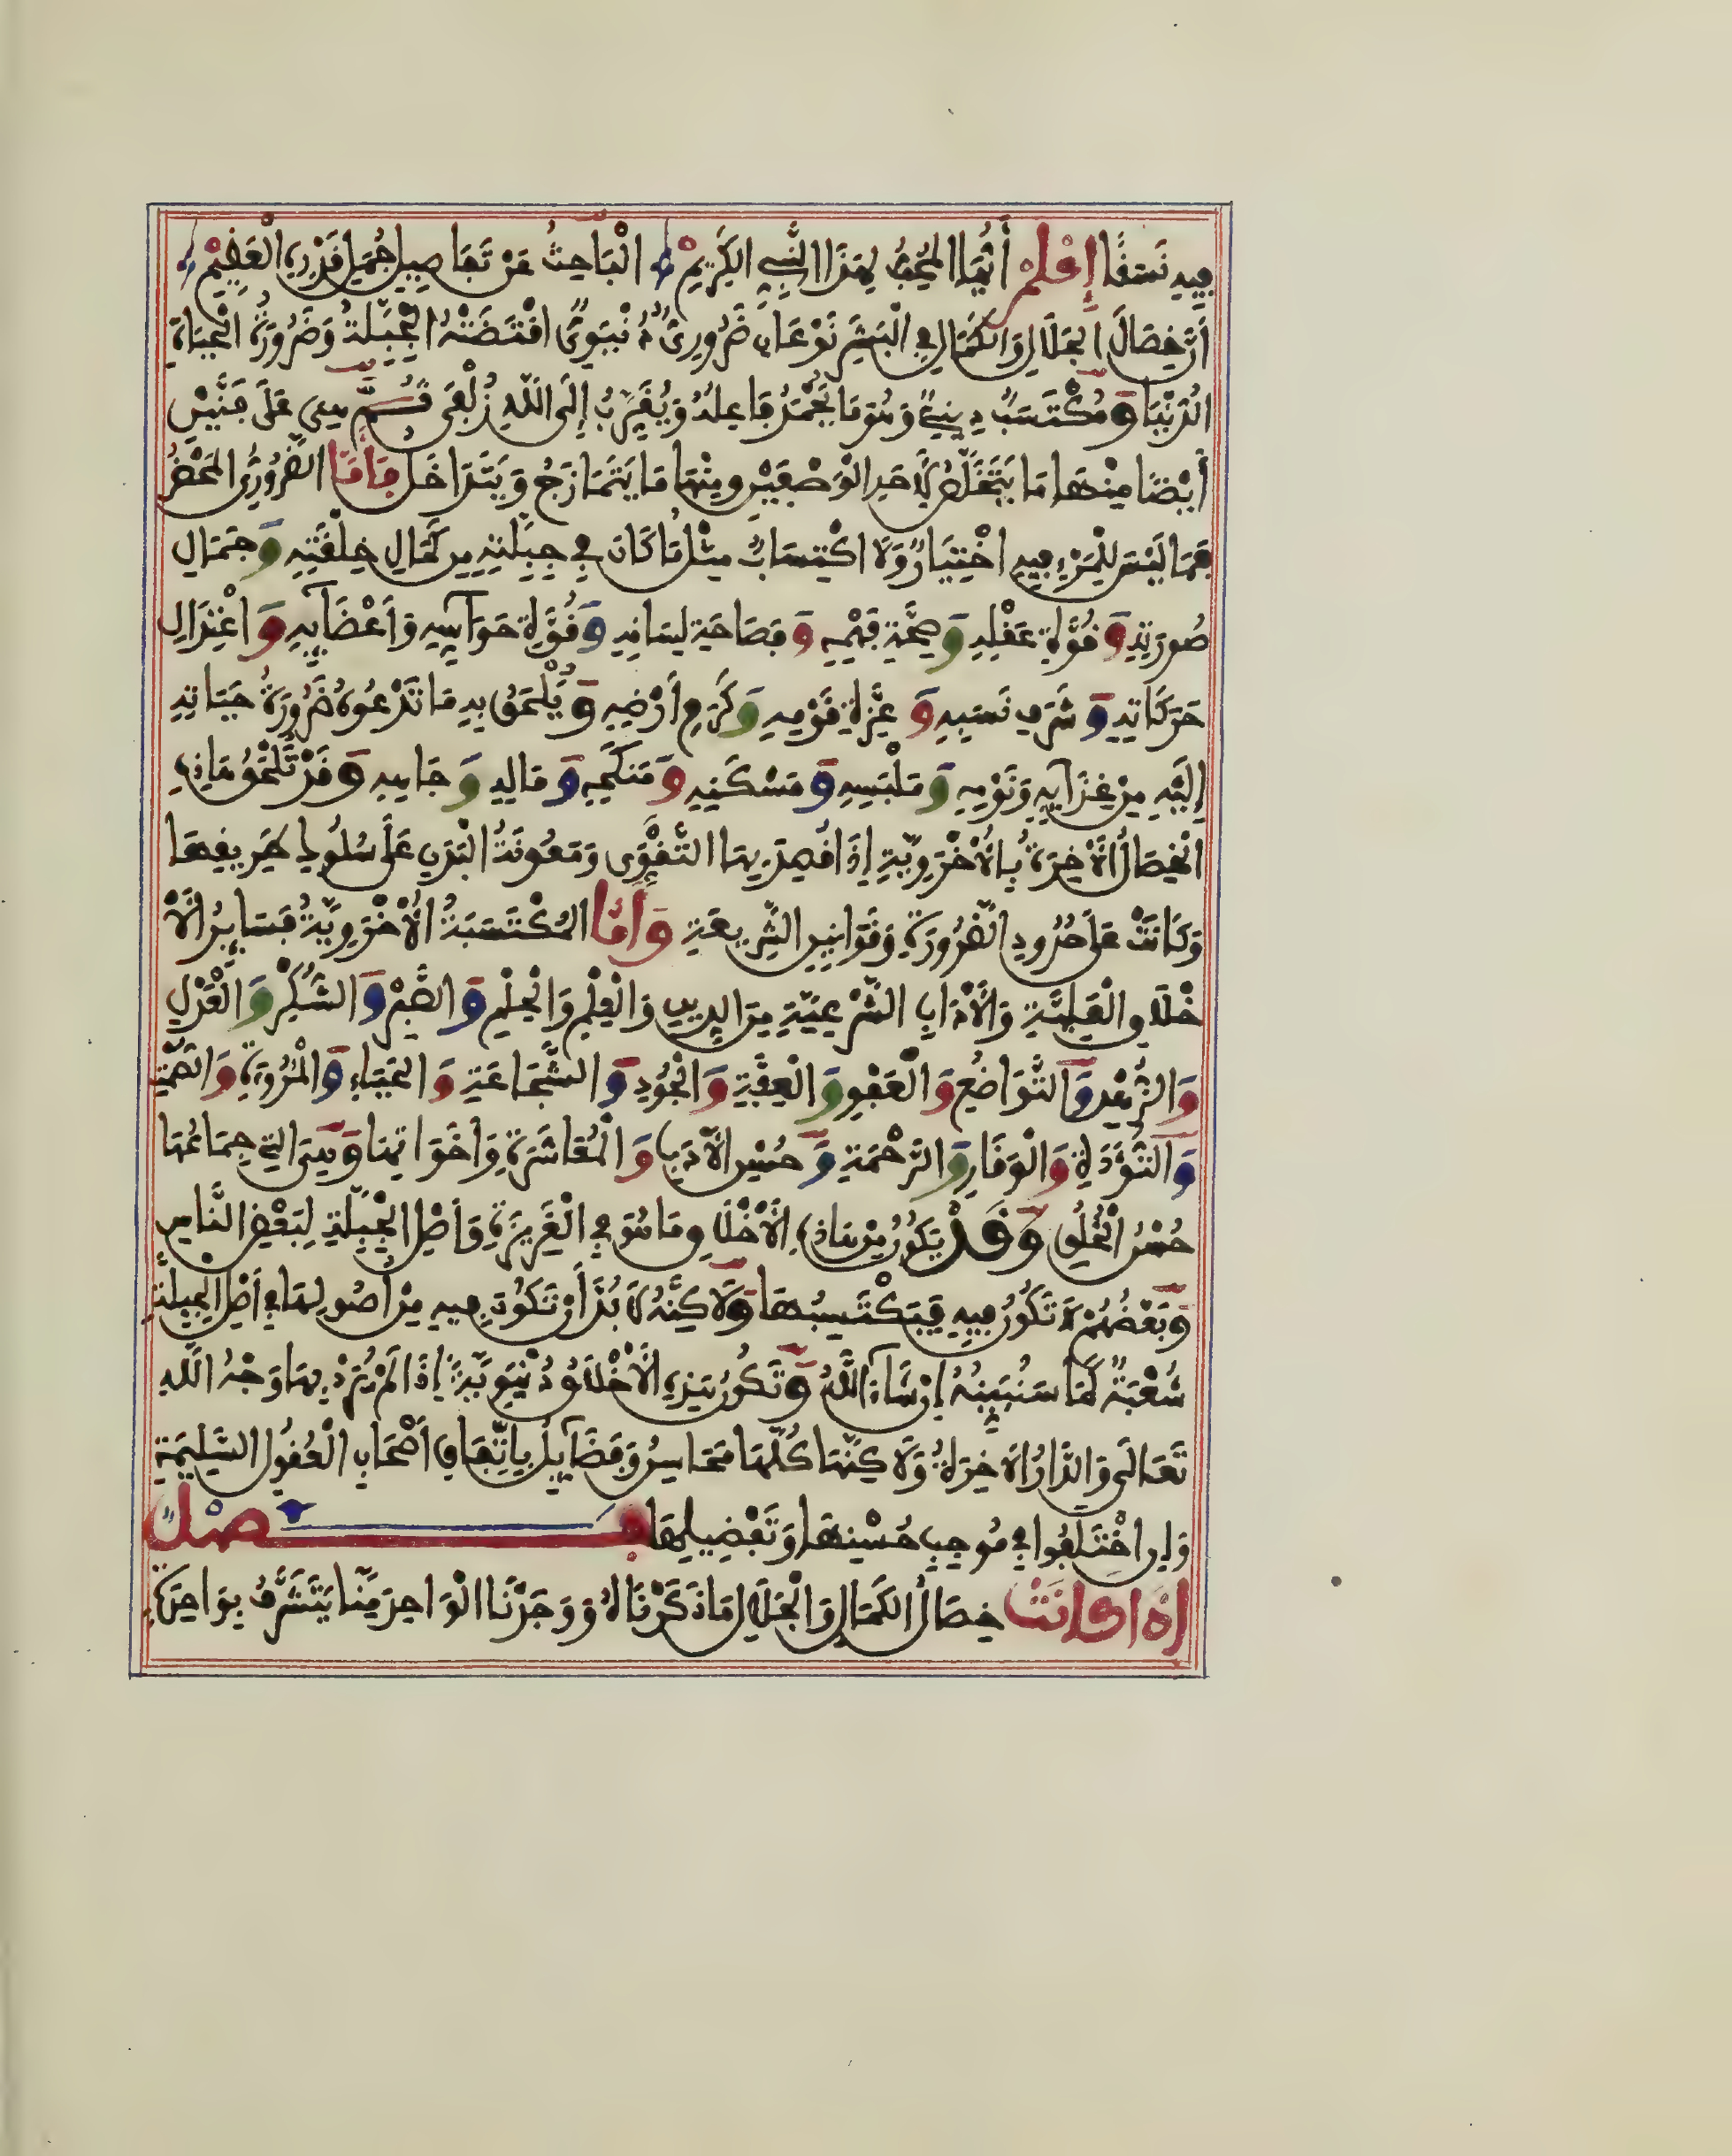 فِيهِ نَسَقًا إِعْلَمْ أَيُّهَا الْمُحِبُّ لِهَذَا النَّبِيِّ الْكَرِيمْ الْبَاحِثُ عَنْ تَفَاصِيلِ جُمَلِ قَدْرِهِ الْعَظِيمْ
أَنَّ خِصَالَ الْجَلَالِ وَالْكَمَالِ فِي الْبَشَرِ نَوْعَانِ ضَرُورِيٌّ دُنْيَوِيٌّ اقْتَضَتْهُ الْجِبِلَّةُ وَضَرُورَةُ الْحَيَاةِ
الدُّنْيَا وَمُكْتَسَبٌ دِينِيٌّ وَهُوَ مَا يُحْمَدُ فَاعِلُهُ وَيُقَرِّبُ إِلَى اللَّهِ زُلْفَى ثُمَّ هِيَ عَلَى فَنَّيْنِ
أَيْضًا مِنْهَا مَا يَتَخَلَّصُ لِأَحَدِ الْوَصْفَيْنِ وَمِنْهَا مَا يَتَمَازَجُ وَيَتَدَاخَلُ فَأَمَّا الضَّرُورِيُّ الْمَحْضُ
فَمَا لَيْسَ لِلْمَرْءِ فِيهِ اخْتِيَارٌ وَلَا اكْتِسَابٌ مِثْلُ مَا كَانَ فِي جِبِلَّتِهِ مِن كَمَالِ خِلْقَتِهِ وَجَمَالِ
صُورَتِهِ وَقُوَّةِ عَقْلِهِ وَصِحَّةِ فَهْمِهِ وَفَصَاحَةِ لِسَانِهِ وَقُوَّةِ حَوَآسِّهِ وَأَعْضَآيِهِ وَاعْتِدَالِ
حَرَكَاتِهِ وَشَرَفِ نَسَبِهِ وَعِزَّةِ قَوْمِهِ وَكَرَمِ أَرْضِهِ وَيُلْحَقُ بِهِ مَا تَدْعُوهُ ضَرُورَةُ حَيَاتِهِ
إِلَيْهِ مِنْ غِذَآيِهِ وَنَوْمِهِ وَمَلْبَسِهِ وَمَسْكَنِهِ وَمَنْكَحِهِ وَمَالِهِ وَجَاهِهِ وَقَدْ تُلْحَقُ هَاذِهِ
الْخِصَالُ الْأَخِرَةُ بِالْأُخْرَوِيَّةِ إِذَا قُصِدَ بِهَا التَّقْوَى وَمَعُونَةُ الْبَدَنِ عَلَى سُلُوكِ طَرِيقِهَا
وَكَانَتْ عَلَى حُدُودِ الضَّرُورَةِ وَقَوَانِينِ الشَّرِيعَةِ وَأَمَّا الْمُكْتَسَبَةُ الْأُخْرَوِيَّةُ فَسَايِرُ الْأَ
خْلَاقِ الْعَلِيَّةِ وَالْأَدَابِ الشَّرْعِيَّةِ مِنَ الدِّينِ وَالْعِلْمِ وَالْحِلْمِ وَالصَّبْرِ وَالشُّكْرِ وَالْعَدْلِ
وَالزُّهْدِ وَالتَّوَاضُعِ وَالْعَفْوِ وَالْعِفَّةِ وَالْجُودِ وَالشَّجَاعَةِ وَالْحَيَاءِ وَالْمُرُوءَةِ وَالصَّمْتِ
وَالتُّؤَدَةِ وَالْوَقَارِ وَالرَّحْمَةِ وَحُسْنِ الْأَدَبِ وَالْمُعَاشَرَةِ وَأَخَوَاتِهَا وَهِيَ الَّتِي جِمَاعُهَا
حُسْنُ الْخُلُقِ وَقَدْ يَكُونُ مِنْ هَاذِهِ الْأَخْلَاقِ مَا هُوَ فِي الْغَرِيزَةِ وَأَصْلِ الْجِبِلَّةِ لِبَعْضِ النَّاسِ
وَبَعْضُهُمْ لَا تَكُونُ فِيهِ فَيَكْتَسِبُهَا وَلَاكِنَّهُ لَا بُدَّ أَنْ تَكُونَ فِيهِ مِنْ أُصُولِهَا فِي أَصْلِ الْجِبِلَّةِ
شُعْبَةٌ كَمَا سَنُبَيِّنُهُ إِنْ شَآءَ اللَّهُ وَتَكُونُ هَذِهِ الْأَخْلَاقُ دُنْيَوِيَّةً إِذَا لَمْ يُرَدْ بِهَا وَجْهُ اللَّهِ
تَعَالَى وَالدَّارُ الْأَخِرَةُ وَلَاكِنَّهَا كُلُّهَا مَحَاسِنُ وَفَضَآيِلُ بِاتِّفَاقِ أَصْحَابِ الْعُقُولِ السَّلِيمَةِ
وَإِنِ اخْتَلَفُوا فِي مُوجِبِ حُسْنِهَا وَتَفْضِيلِهَا فَصْلٌ
إِذَا كَانَتْ خِصَالُ الْكَمَالِ وَالْجَلَالِ مَا ذَكَرْنَاهُ وَوَجَدْنَا الْوَاحِدَ مِنَّا يَتَشَرَّفُ بِوَاحِدَةٍ